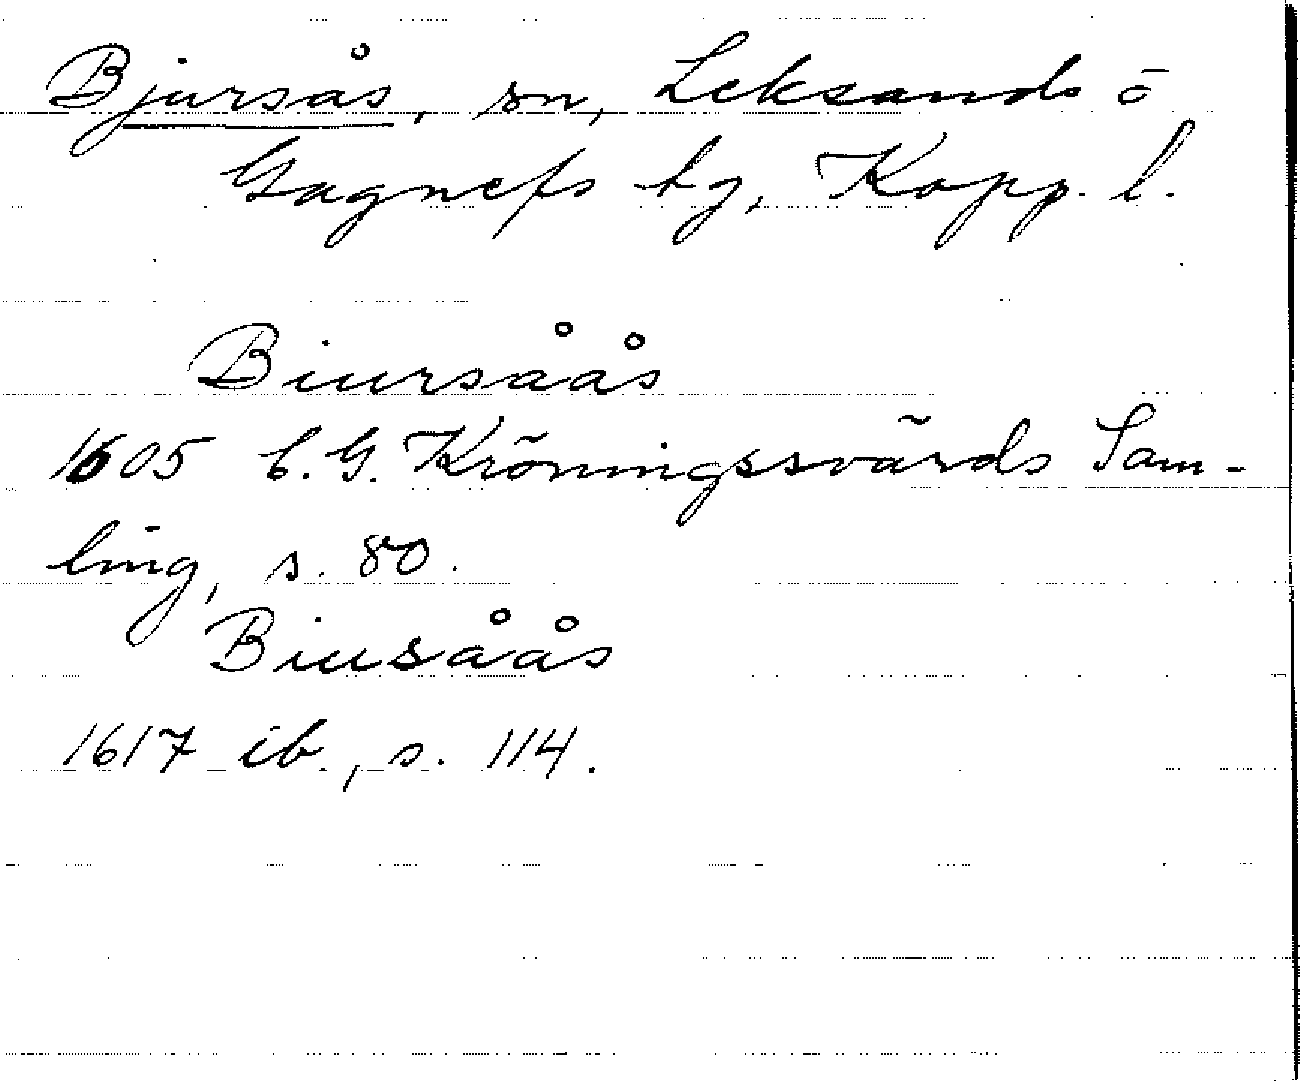 Bjursås, sn, Leksands o
Gagnefs tg, Kopp. l.
Biursåås
1605 C. G. Kröningssvärds Sam-
ling, s. 80.
Biusåås
1617 ib., s. 114.